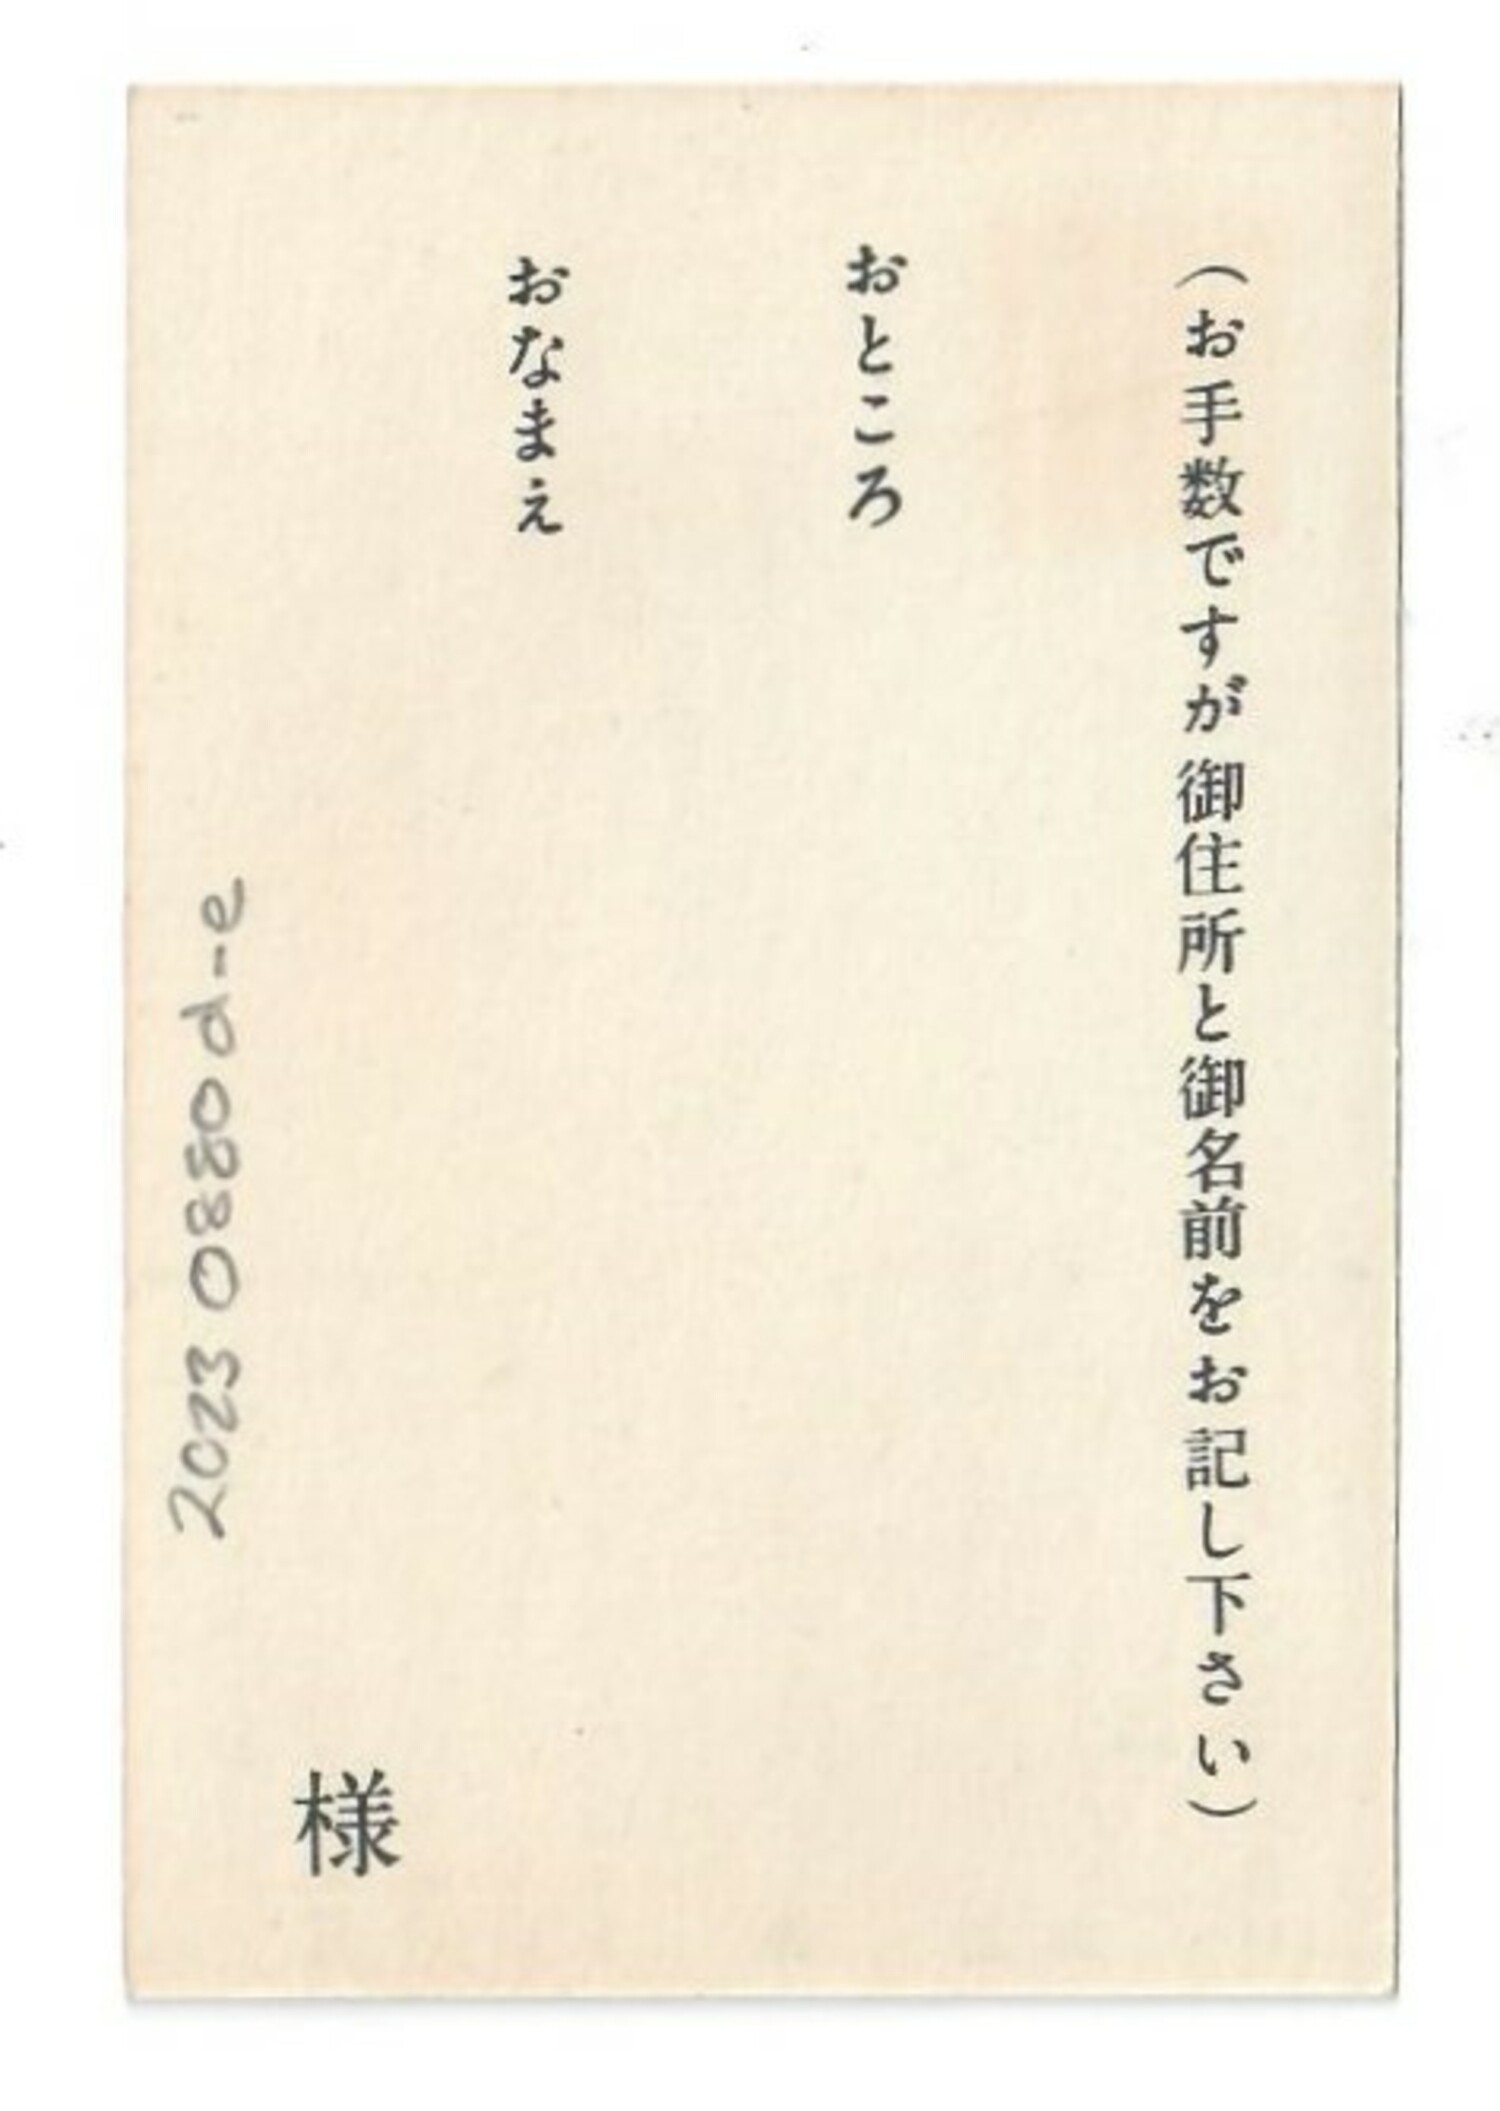 （お手数ですが御住所と御名前をお記し下さい）
おところ
おなまえ
様
2023 0880 d-e